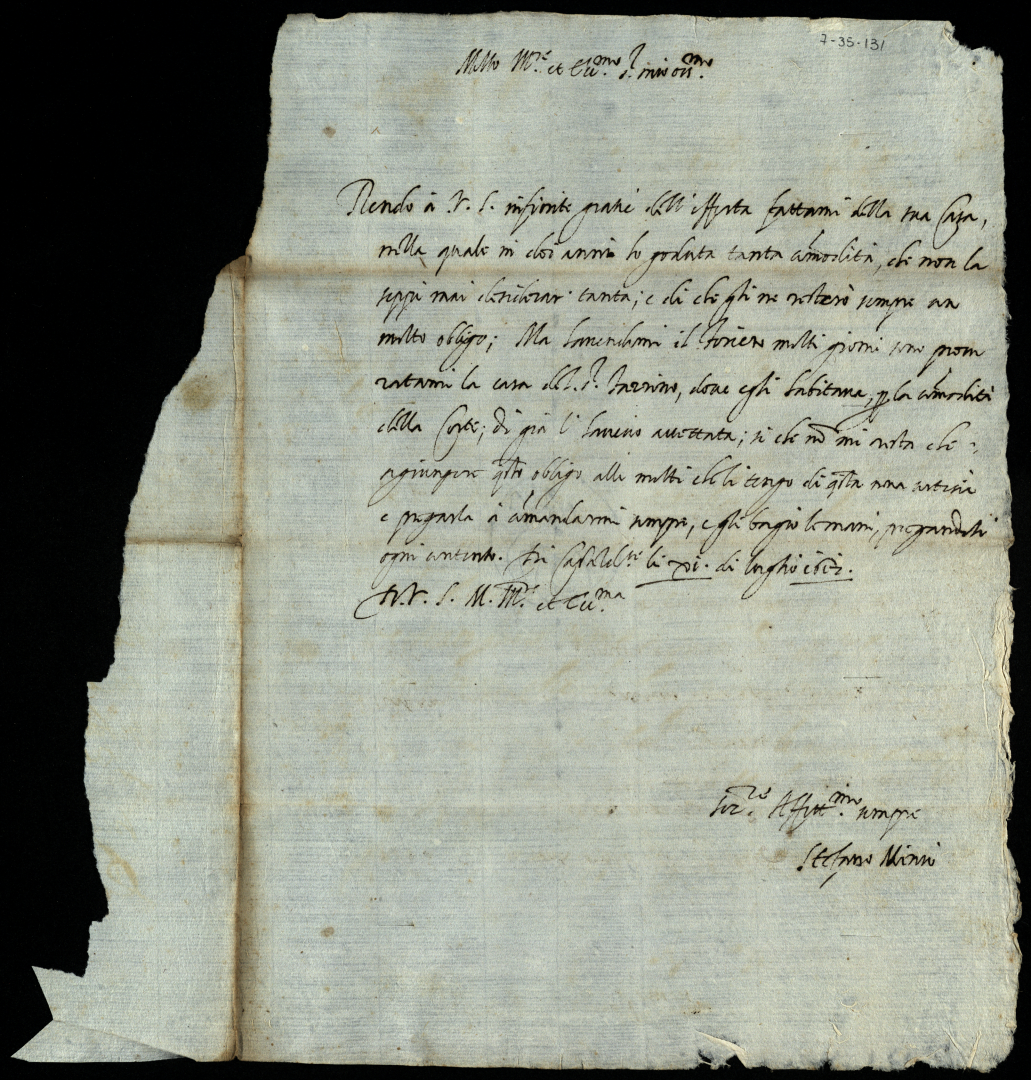 7-35-131
Molto M.re et Ecc.mo S.r mio oss.mo
Rendo à V. S. infinite gratie dell'offerta fattami della sua Casa,
nella quale in doi anni ho goduta tanta cõmodità, che non la
seppi mai desiderar tanta; e di che gli ne resterò sempre con
molto obligo; Ma havendomi il foriero molti giorni sono procu
ratami la casa del S.r dove egli habitava, p la cõmodità
della Corte; di già l'havevo accettata; si che nõ mi resta che
agiungere q.sto obligo alli molti che li tengo di q.sta nova cortesia
e pregarla à cõmandarmi sempre, e gli bagio le mani, pregandoli
ogni contento. Di Casale li xi. di luglio
Di V. S. M. M.re et Ecc.ma
Ser.re Affett.mo sempre
Stefano